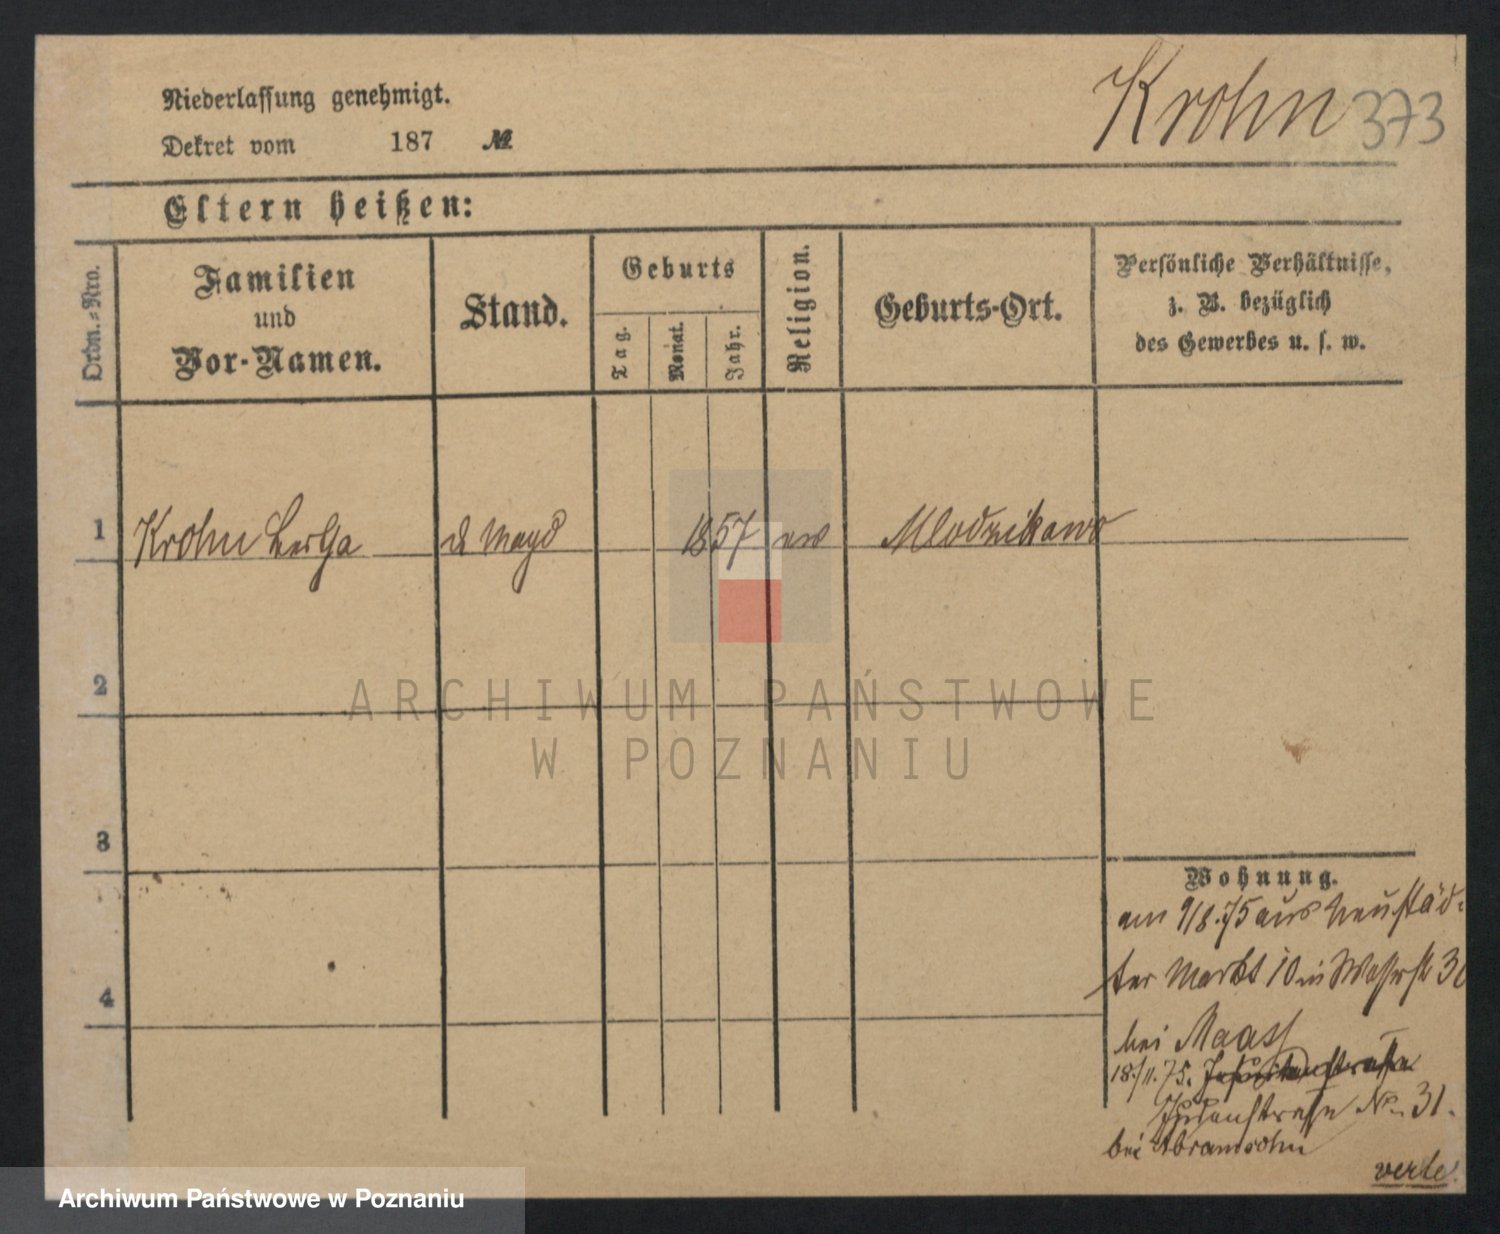 Niederlassung genehmigt.
Dekret vom 187 №
Krohn 373
Eltern heißen:
Ordn.-Nro.
Familien
und
Vor-Namen.
Stand.
Geburts
Tag.
Monat.
Jahr.
Religion.
Geburts-Ort.
Persönliche Verhältnisse,
z. B. bezüglich
des Gewerbes u. s. w.
1 Krohn Bertha d Magd 1857 ev Mlodzikowo
2
ARCHIWUM PAŃSTWOWE
W POZNANIU
3
Wohnung.
am 9/8.75 aus Neustäd-
ter Markt 10 in Wasserstr 30
4
bei Maass
18./11.75. Jesuitenstrasse
Judenstrasse No 31.
bei Abramsohn
verte.
Archiwum Państwowe w Poznaniu